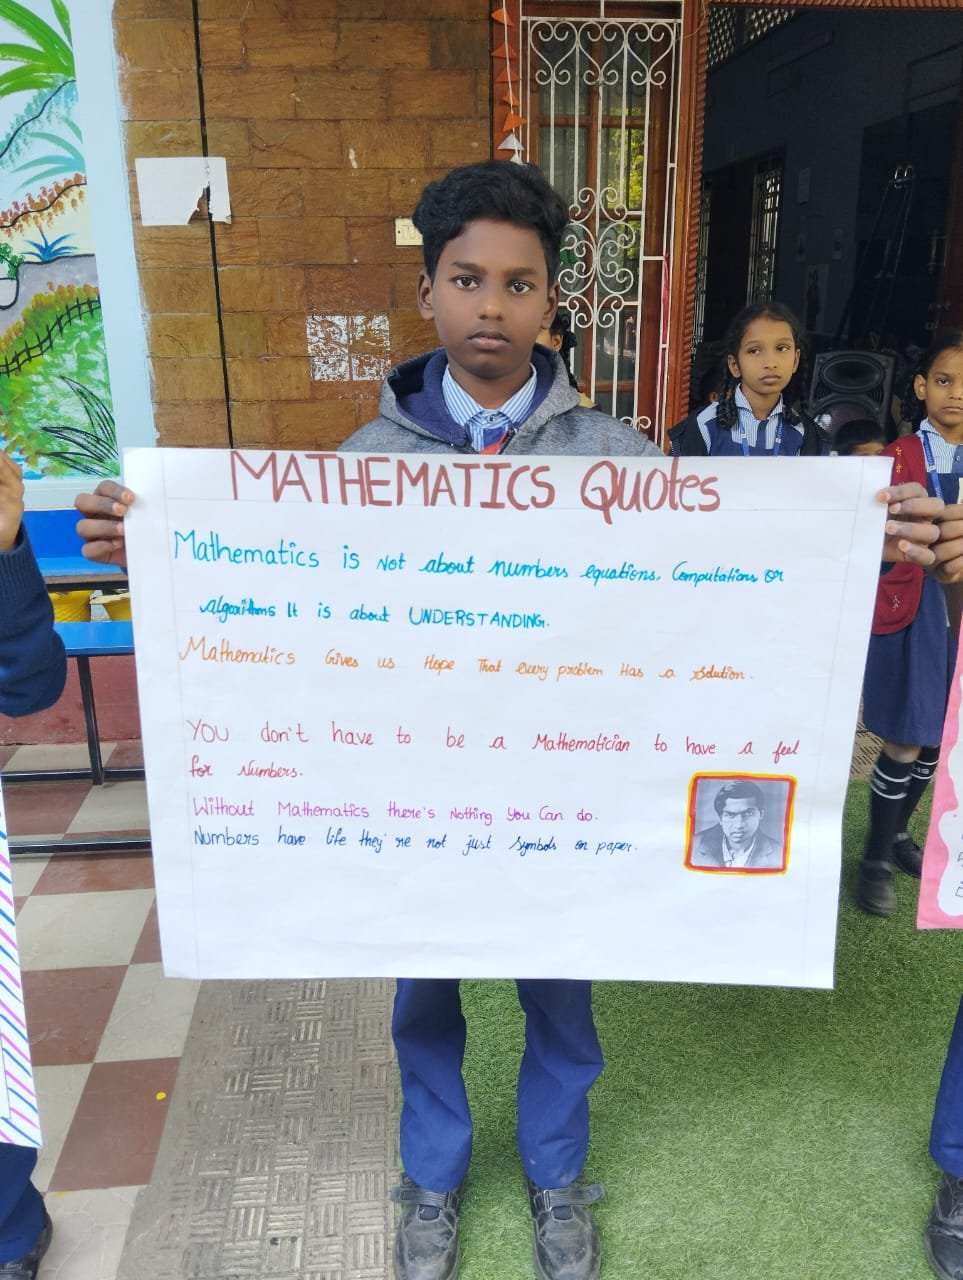 MATHEMATICS Quotes
Mathematics is Not about numbers equations. Computations or
algorithms It is about UNDERSTANDING.
Mathematics Gives us Hope That every problem Has a solution.
YOU don't have to be a Mathematician to have a feel
for Numbers.
Without Mathematics there's Nothing You Can do.
Numbers have life they're not just symbols on paper.